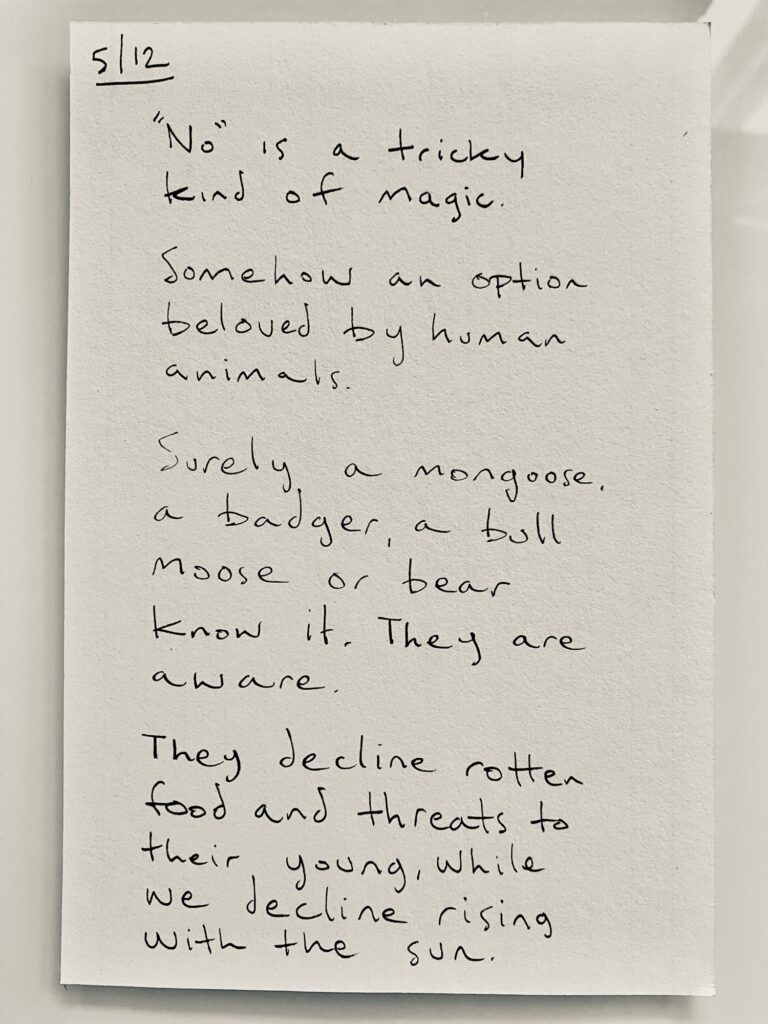 5/12
"No" is a tricky
kind of magic.
Somehow an option
beloved by human
animals.
Surely a mongoose,
a badger, a bull
moose or bear
know it. They are
aware.
They decline rotten
food and threats to
their young, while
we decline rising
with the sun.